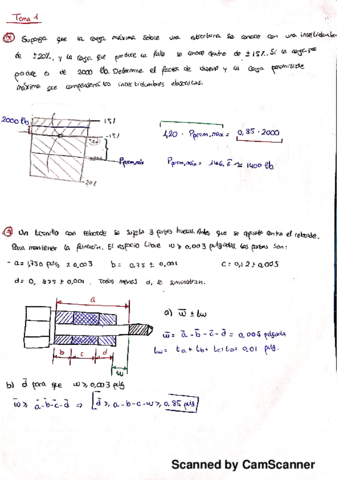 Tema 1
Suponga que la carga máxima sobre una estructura se conoce con una incertidumbre
de ±20%, y la carga que produce la falla se conoce dentro de ±15%. Si la carga que
produce es de 2000 lb. Determine el factor de diseño y la carga permisible
máxima que compensará las incertidumbres absolutas.
2000 lb
15%
-15%
+20%
Pperm,máx
-20%
1,20 · Pperm,máx = 0,85 · 2000
Pperm,máx = 1416,6 ≅ 1400 lb
Un tornillo con reborde se sujeta 3 partes huecas antes que se apriete entre el reborde.
Para mantener la función. El espacio libre w ≥ 0,003 pulgadas. Las partes son:
- a = 1,750 pulg ± 0,003 b = 0,75 ± 0,001 c = 0,12 ± 0,005
d = 0, 875 ± 0,001. Todos menos d, se suministran.
a
b c d
w
a) w̄ ± tw
w̄ = ā - b̄ - c̄ - d̄ = 0,005 pulgada
tw = ta + tb + tc + td = 0,01 pulg.
b) d̄ para que w ≥ 0,003 pulg
w̄ ≥ ā - b̄ - c̄ - d̄ ⇒ d̄ ≥ a - b - c - w ≥ 0,86 pulg
Scanned by CamScanner